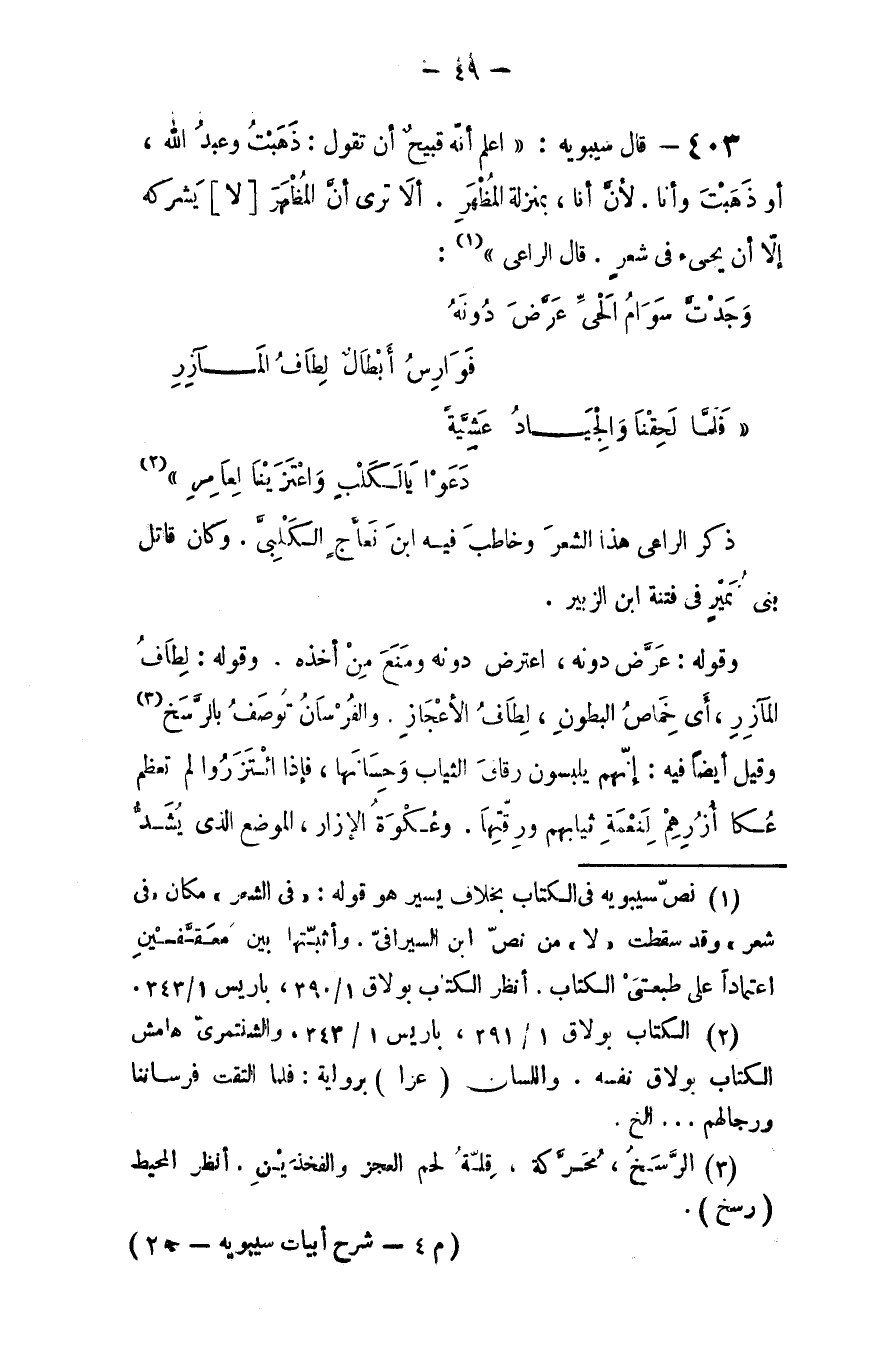 — ٤٩ —
٤٠٣ — قال سيبويه : « اعلم أنّه قبيحٌ أن تقول : ذَهَبْتُ وعبدُ الله ،
أو ذَهَبْتَ وأنا . لأنَّ أنا ، بمنزلة المُظْهَرِ . ألَا ترى أنَّ المُظْهَرَ [ لا ] يَشركه
إلّا أن يجىء فى شعرٍ . قال الراعى »(١) :
وَجَدْتَّ سَوَامُ الَحْىِّ عَرَّضَ دُونَهُ
فَوَارِسُ أَبْطَالٌ لِطَافُ المَـــآزِرِ
« فَلَمَّا لَحِقْنَا وَالْجِيَـــادُ عَشِيَّةً
دَعَوْا يَالَـكَلْبٍ وَاعْتَزَيْنَا لِعَامِرِ »(٢)
ذكر الراعى هذا الشعرَ وخاطبَ فيـه ابنَ نَعاَّجٍ الـكَلْبِىَّ . وكان قاتل
بنى نُمَيْرٍ فى فتنة ابن الزبير .
وقوله : عَرَّض دونه ، اعترض دونه ومَنَعَ مِنْ أخذه . وقوله : لِطاَفُ
المَآزِرِ ، أَى خِمَاصُ البطونِ ، لِطاَفُ الأعْجَازِ . والفُرْسَانُ تُوصَفُ بالرَّسَخِ(٣)
وقيل أيضاً فيه : إنّهم يلبسون رقاقَ الثياب وَحِسَانَها ، فإذا ائْتَزَرُوا لم تعظم
عُـكا أُزُرِهِمْ لِنَعْمَةِ ثيابهم ورِقَّتِهاَ . وعُـكْوَةُ الإزار ، الموضع الذى يُشَـدُّ
(١) نصّ سيبويه فى الـكتاب بخلاف يسير هو قوله : « فى الشعر » مكان « فى
شعر » وقد سقطت « لا » من نصّ ابن السيرافىّ . وأثبتّـها بين مُعَـقَّـفَـيْنِ
اعتماداً على طبعتىَ الـكتاب . أنظر الـكتاب بولاق ١/٣٩٠ ، باريس ١/٣٤٣ .
(٢) الـكتاب بولاق ١ / ٣٩١ ، باريس ١ / ٣٤٣ . والشنتمرىّ هامش
الـكتاب بولاق نفسه . واللسان ( عزا ) برواية : فلما التقت فرساننا
ورجالهم ... الخ .
(٣) الرَّسَـخُ ، مُحَرَّكة ، قِلّـةُ لحم العجز والفخذيْـنِ . أنظر المحيط
( رسخ ) .
( م ٤ — شرح أبيات سيبويه — ج ٢ )